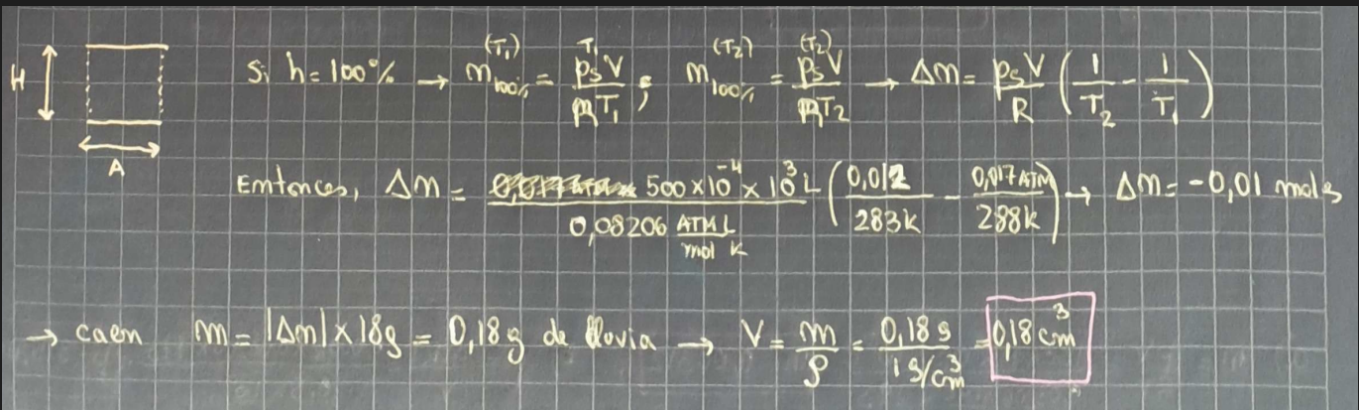 H
A
Si h = 100% → n_{100%}^{(T₁)} = p_s^{T₁} V / RT₁ ; n_{100%}^{(T₂)} = p_s^{(T₂)} V / RT₂ → Δn = p_s V / R (1/T₂ - 1/T₁)
Entonces, Δn = 500 x 10⁻⁴ x 10³ L / 0,08206 ATM L / mol K (0,012 / 283K - 0,017 ATM / 288K) → Δn = -0,01 moles
→ caen m = |Δn| x 18g = 0,18 g de lluvia → V = m / ρ = 0,18 g / 1 g/cm³ = 0,18 cm³